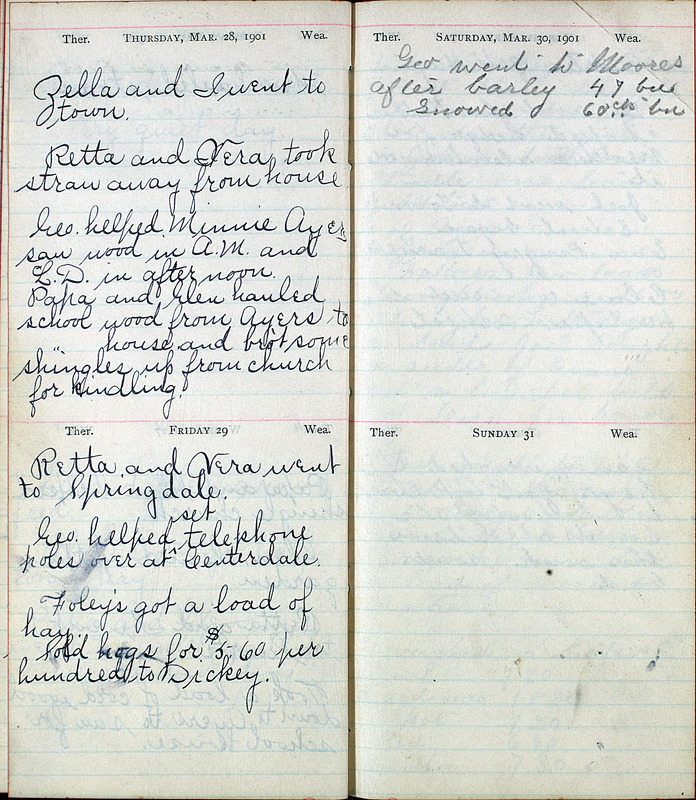 Ther. THURSDAY, MAR. 28, 1901 Wea.
Zella and I went to
town.
Retta and Vera took
straw away from house
Geo. helped Minnie Ayers
saw wood in A.M. and
L.D. in afternoon.
Papa and Glen hauled
school wood from Ayers to
" house and bro't some
shingles up from church
for kindling.
Ther. FRIDAY 29 Wea.
Retta and Vera went
to Springdale.
set
Geo. helped telephone
poles over at Centerdale.
Foley's got a load of
hay.
Sold hogs for $5.60 per
hundred to Dickey.
Ther. SATURDAY, MAR. 30, 1901 Wea.
Geo went to Moores
after barley 47 bu
Snowed 60cts bu
Ther. SUNDAY 31 Wea.